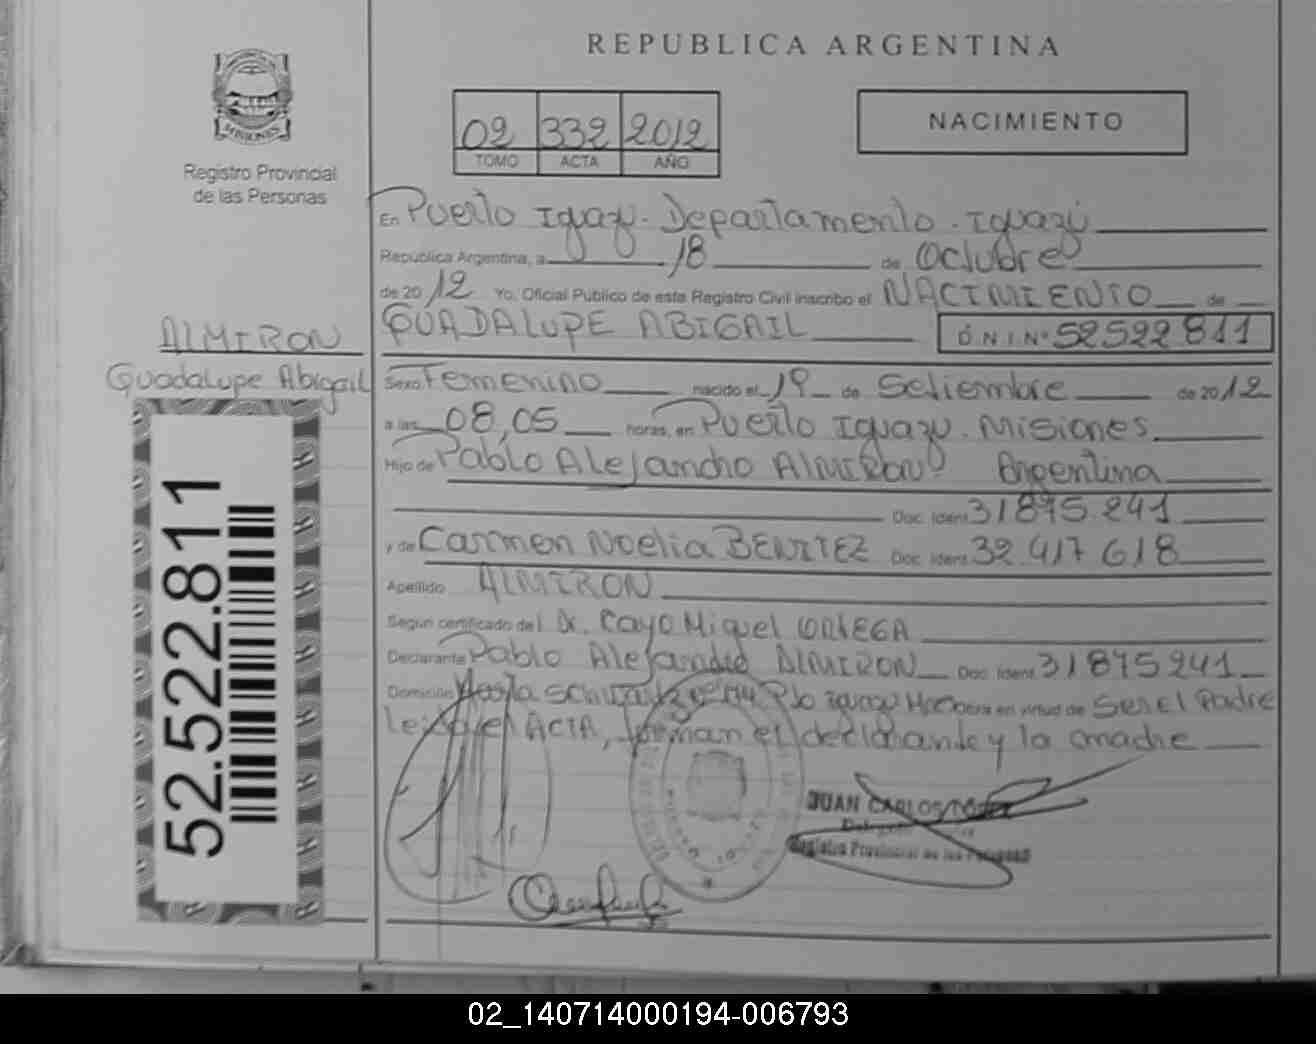 REPUBLICA ARGENTINA
MISIONES
Registro Provincial
de las Personas
02 332 2012
TOMO ACTA AÑO
NACIMIENTO
En Puerto Iguazu. Departamento. Iguazú
República Argentina, a 18 de Octubre
de 2012 Yo, Oficial Público de este Registro Civil inscribo el NACIMIENTO de
GUADALUPE ABIGAIL D N I Nº 52522811
ALMIRON
Guadalupe Abigail
Sexo Femenino nacido el 19 de Setiembre de 2012
a las 08,05 horas, en Puerto Iguazu. Misiones
Hijo de Pablo Alejandro ALMIRON Argentina
Doc. Ident 31875.241
y de Carmen Noelia BENITEZ Doc. Ident. 32.417 618
Apellido ALMIRON
Según certificado del Dr. Cayo Miguel ORTEGA
Declarante Pablo Alejandro ALMIRON Doc. Ident 31875241
Domicilio Pto Iguazu en virtud de Ser el Padre
Leida el ACTA, firman el declarante y la madre
52.522.811
JUAN CARLOS
Registro Provincial de las Personas
02_140714000194-006793